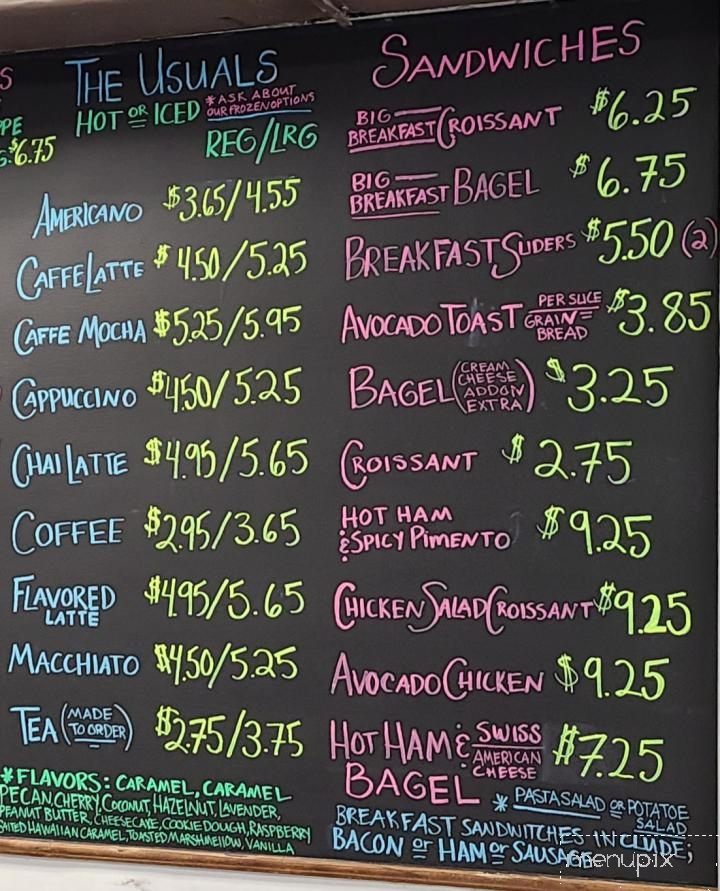 S
PPE
$6.75
THE USUALS
HOT OR ICED
*ASK ABOUT
OUR FROZEN OPTIONS
REG/LRG
AMERICANO $3.65/4.55
CAFFE LATTE $4.50/5.25
CAFFE MOCHA $5.25/5.95
CAPPUCCINO $4.50/5.25
CHAI LATTE $4.95/5.65
COFFEE $2.95/3.65
FLAVORED
LATTE $4.95/5.65
MACCHIATO $4.50/5.25
TEA (MADE
TO ORDER) $2.75/3.75
*FLAVORS: CARAMEL, CARAMEL
PECAN, CHERRY, COCONUT, HAZELNUT, LAVENDER,
PEANUT BUTTER, CHEESECAKE, COOKIE DOUGH, RASPBERRY
SALTED HAWAIIAN CARAMEL, TOASTED MARSHMELLOW, VANILLA
SANDWICHES
BIG
BREAKFAST CROISSANT $6.25
BIG
BREAKFAST BAGEL $6.75
BREAKFAST SLIDERS $5.50 (2)
AVOCADO TOAST PER SLICE
GRAIN
BREAD $3.85
BAGEL (CREAM
CHEESE
ADD ON
EXTRA) $3.25
CROISSANT $2.75
HOT HAM
& SPICY PIMENTO $9.25
CHICKEN SALAD CROISSANT $9.25
AVOCADO CHICKEN $9.25
HOT HAM & SWISS
AMERICAN
CHEESE
BAGEL $7.25
* PASTA SALAD OR POTATOE
SALAD
BREAKFAST SANDWITCHES INCLUDE;
BACON OR HAM OR SAUSAGE
menupix